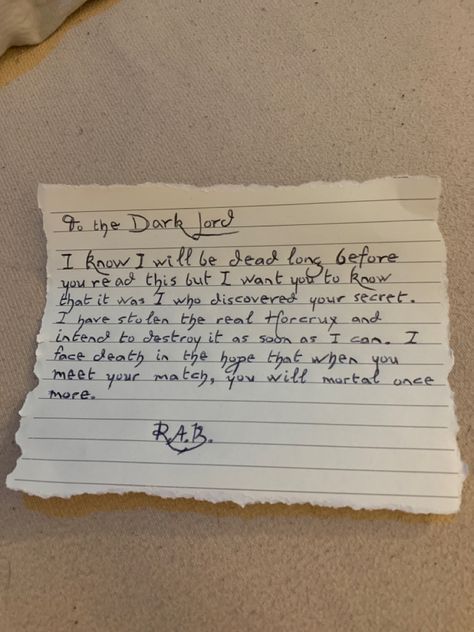 To the Dark Lord
I know I will be dead long before
you read this but I want you to know
that it was I who discovered your secret.
I have stolen the real Horcrux and
intend to destroy it as soon as I can. I
face death in the hope that when you
meet your match, you will mortal once
more.
R.A.B.